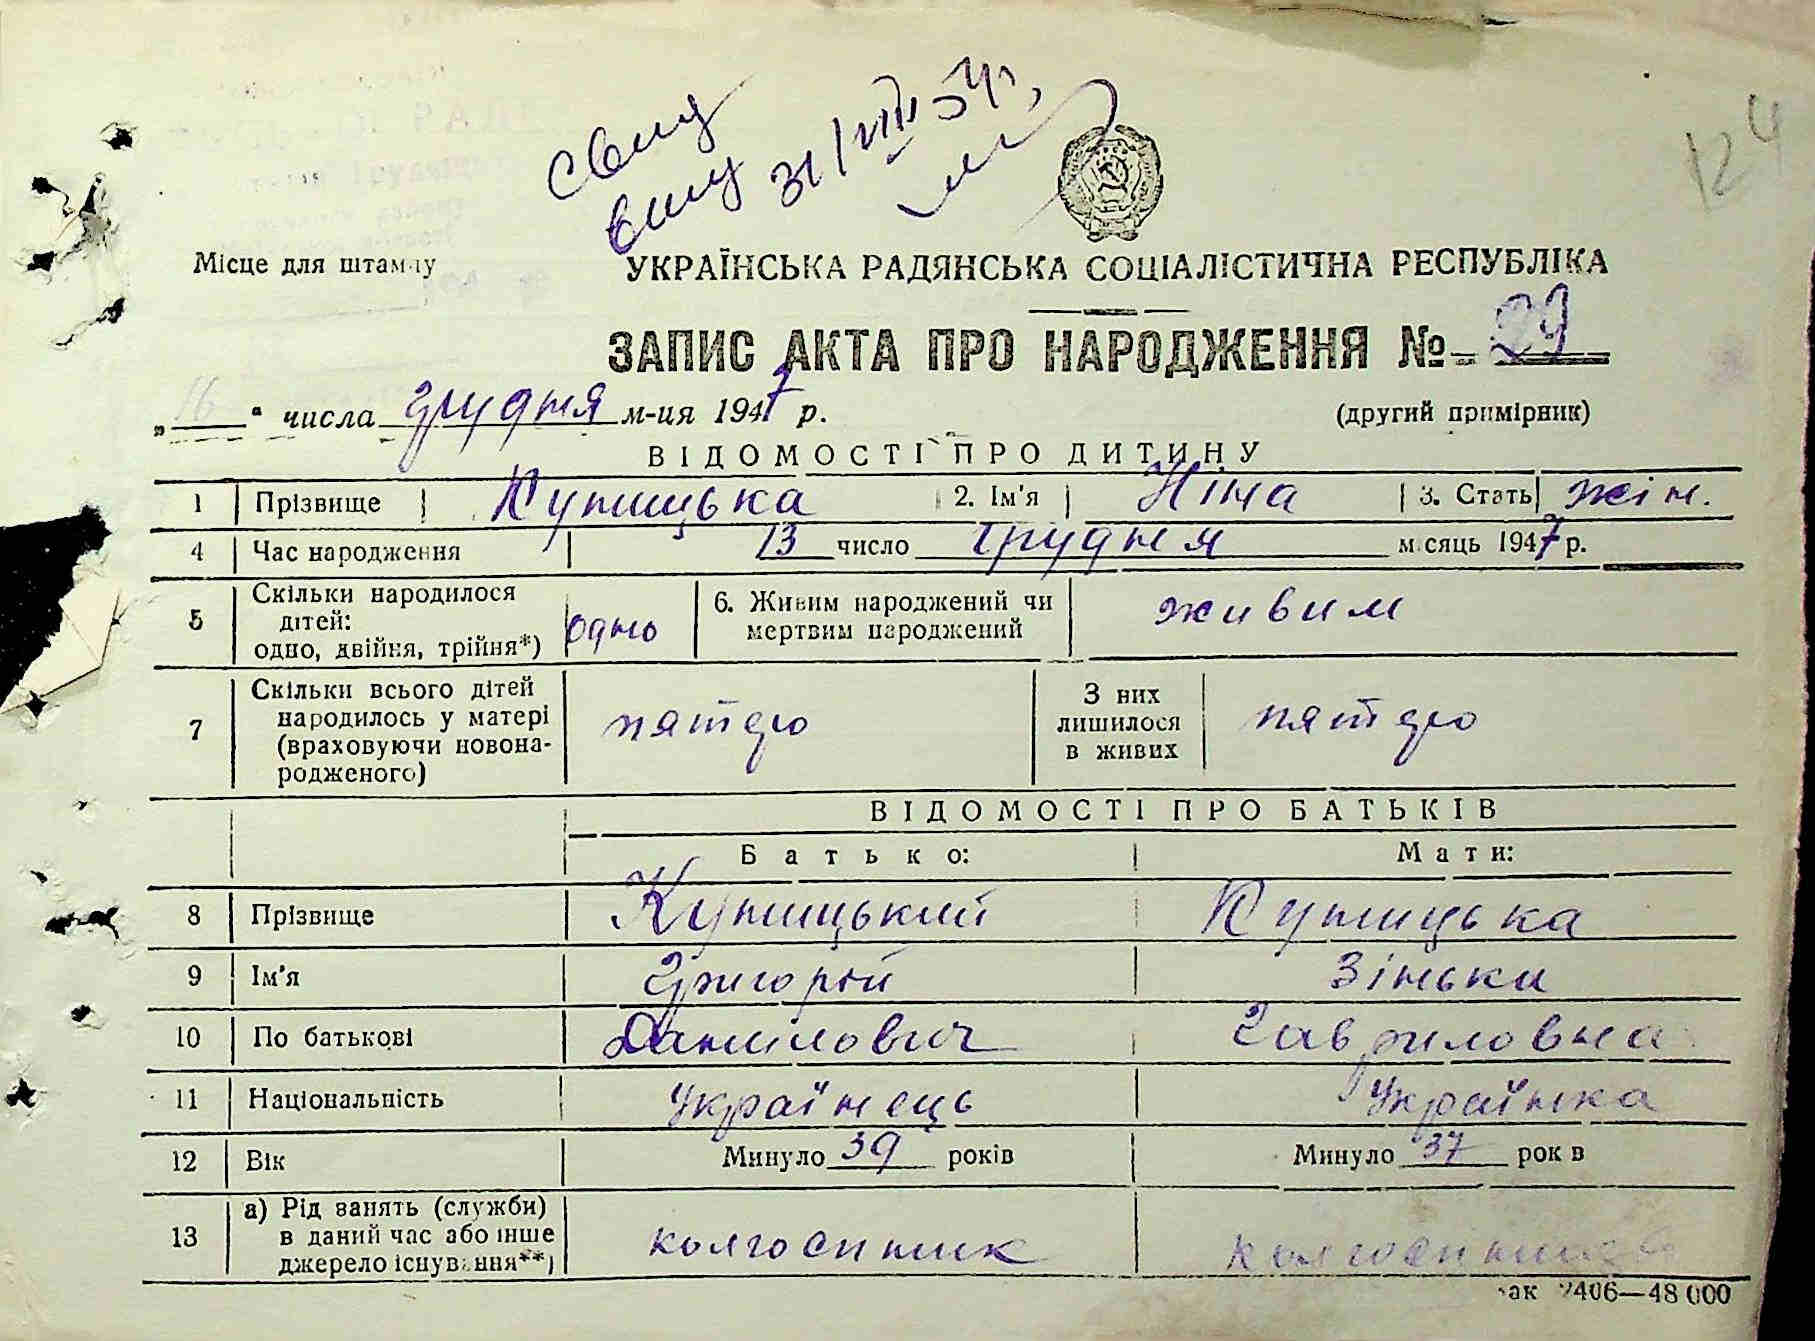 свид
вид 31/VIII 54 г.
124
Місце для штампу
УКРАЇНСЬКА РАДЯНСЬКА СОЦІАЛІСТИЧНА РЕСПУБЛІКА
ЗАПИС АКТА ПРО НАРОДЖЕННЯ № 29
„16" числа грудня м-ця 1947 р.
(другий примірник)
ВІДОМОСТІ ПРО ДИТИНУ
1 Прізвище Купицька 2. Ім'я Ніна 3. Стать жін.
4 Час народження 13 число грудня місяць 1947 р.
5 Скільки народилося дітей: одно, двійня, трійня*) одно 6. Живим народжений чи мертвим народжений живим
7 Скільки всього дітей народилось у матері (враховуючи новонародженого) пятеро З них лишилося в живих пятеро
ВІДОМОСТІ ПРО БАТЬКІВ
Батько: Мати:
8 Прізвище Купицький Купицька
9 Ім'я Григорій Зінька
10 По батькові Данилович Гавриловна
11 Національність Українець Українка
12 Вік Минуло 39 років Минуло 37 рок в
13 а) Рід занять (служби) в даний час або інше джерело існування**) колгоспник колгоспниця
Зак 2406—48 000